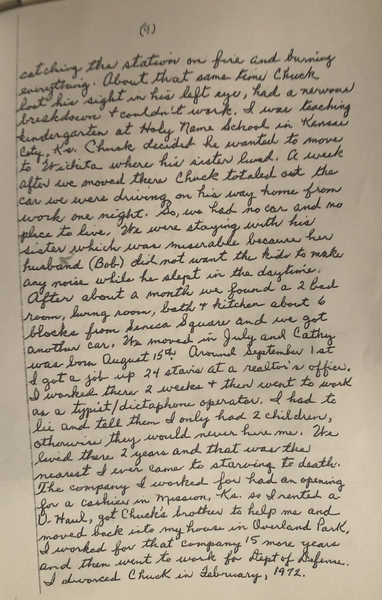 (4)
catching the station on fire and burning
everything. About that same time Chuck
lost his sight in his left eye, had a nervous
breakdown & couldn't work. I was teaching
kindergarten at Holy Name School in Kansas
City, Ks. Chuck decided he wanted to move
to Wichita where his sister lived. A week
after we moved there Chuck totaled out the
car we were driving on his way home from
work one night. So, we had no car and no
place to live. We were staying with his
sister which was miserable because her
husband (Bob) did not want the kids to make
any noise while he slept in the daytime.
After about a month we found a 2 bed
room, living room, bath & kitchen about 6
blocks from Seneca Square and we got
another car. We moved in July and Cathy
was born August 15th. Around September 1st
I got a job up 24 stairs at a realtor's office.
I worked there 2 weeks & then went to work
as a typist/dictaphone operator. I had to
lie and tell them I only had 2 children,
otherwise they would never hire me. We
lived there 2 years and that was the
nearest I ever came to starving to death.
The company I worked for had an opening
for a cashier in Mission, Ks. so I rented a
U-Haul, got Chuck's brother to help me and
moved back into my house in Overland Park.
I worked for that company 15 more years
and then went to work for Dept of Defense.
I divorced Chuck in February, 1972.